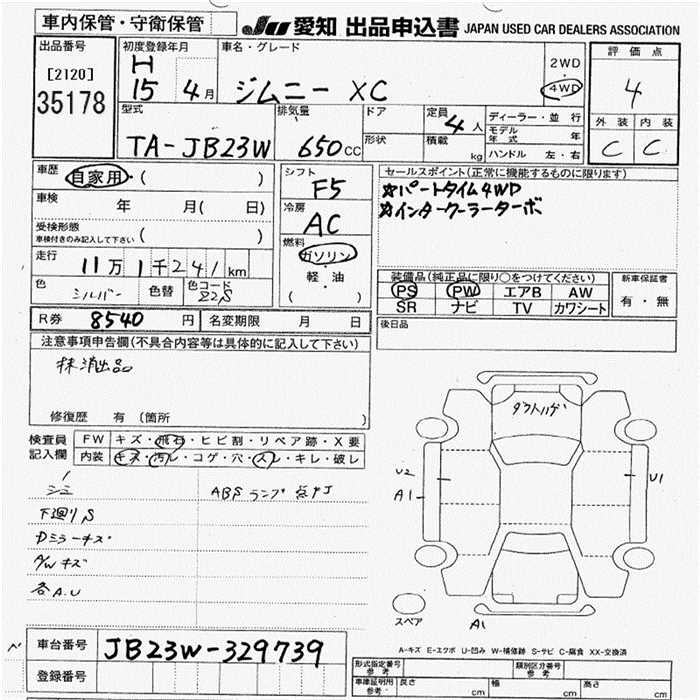 車内保管・守衛保管
JU 愛知 出品申込書 JAPAN USED CAR DEALERS ASSOCIATION
出品番号
[2120]
35178
初度登録年月
H
15 4月
車名・グレード
ジムニー XC
2WD
・
4WD
評価点
4
外装 内装
C C
型式
TA-JB23W
排気量
650cc
ドア
形状
定員
4人
積載
kg
ディーラー・並行
モデル年式 年
ハンドル 左・右
車歴
自家用・( )
車検 年 月( 日)
受検形態
車検付きのみ記入して下さい ( )
走行
11万1千241km
色
シルバー
色替
色コード
Z2S
シフト
F5
冷房
AC
燃料
ガソリン
・
軽・油
( )
セールスポイント(正常に機能するものに限ります)
☆パートタイム4WD
☆インタークーラーターボ
装備品(純正品に限り○をつけてください)
PS PW エアB AW
SR ナビ TV カワシート
新車保証書
有・無
R券 8540円 名変期限 月 日
後日品
注意事項申告欄(不具合内容等は具体的に記入して下さい)
抹消出品
修復歴 有(箇所 )
検査員
記入欄
FW キズ・飛石・ヒビ割・リペア跡・X要
内装 キズ・汚レ・コゲ・穴・スレ・キレ・破レ
ABSランプ点灯
下廻りS
Dミラーキズ
A/Wキズ
各A.U
U2
A1
U1
スペア
A1
A-キズ E-エクボ U-凹み W-補修跡 S-サビ C-腐食 XX-交換済
車台番号 JB23W-329739
登録番号
形式指定番号
参考
類別区分番号
参考
車庫証明用
参考
長さ cm 幅 cm 高さ cm